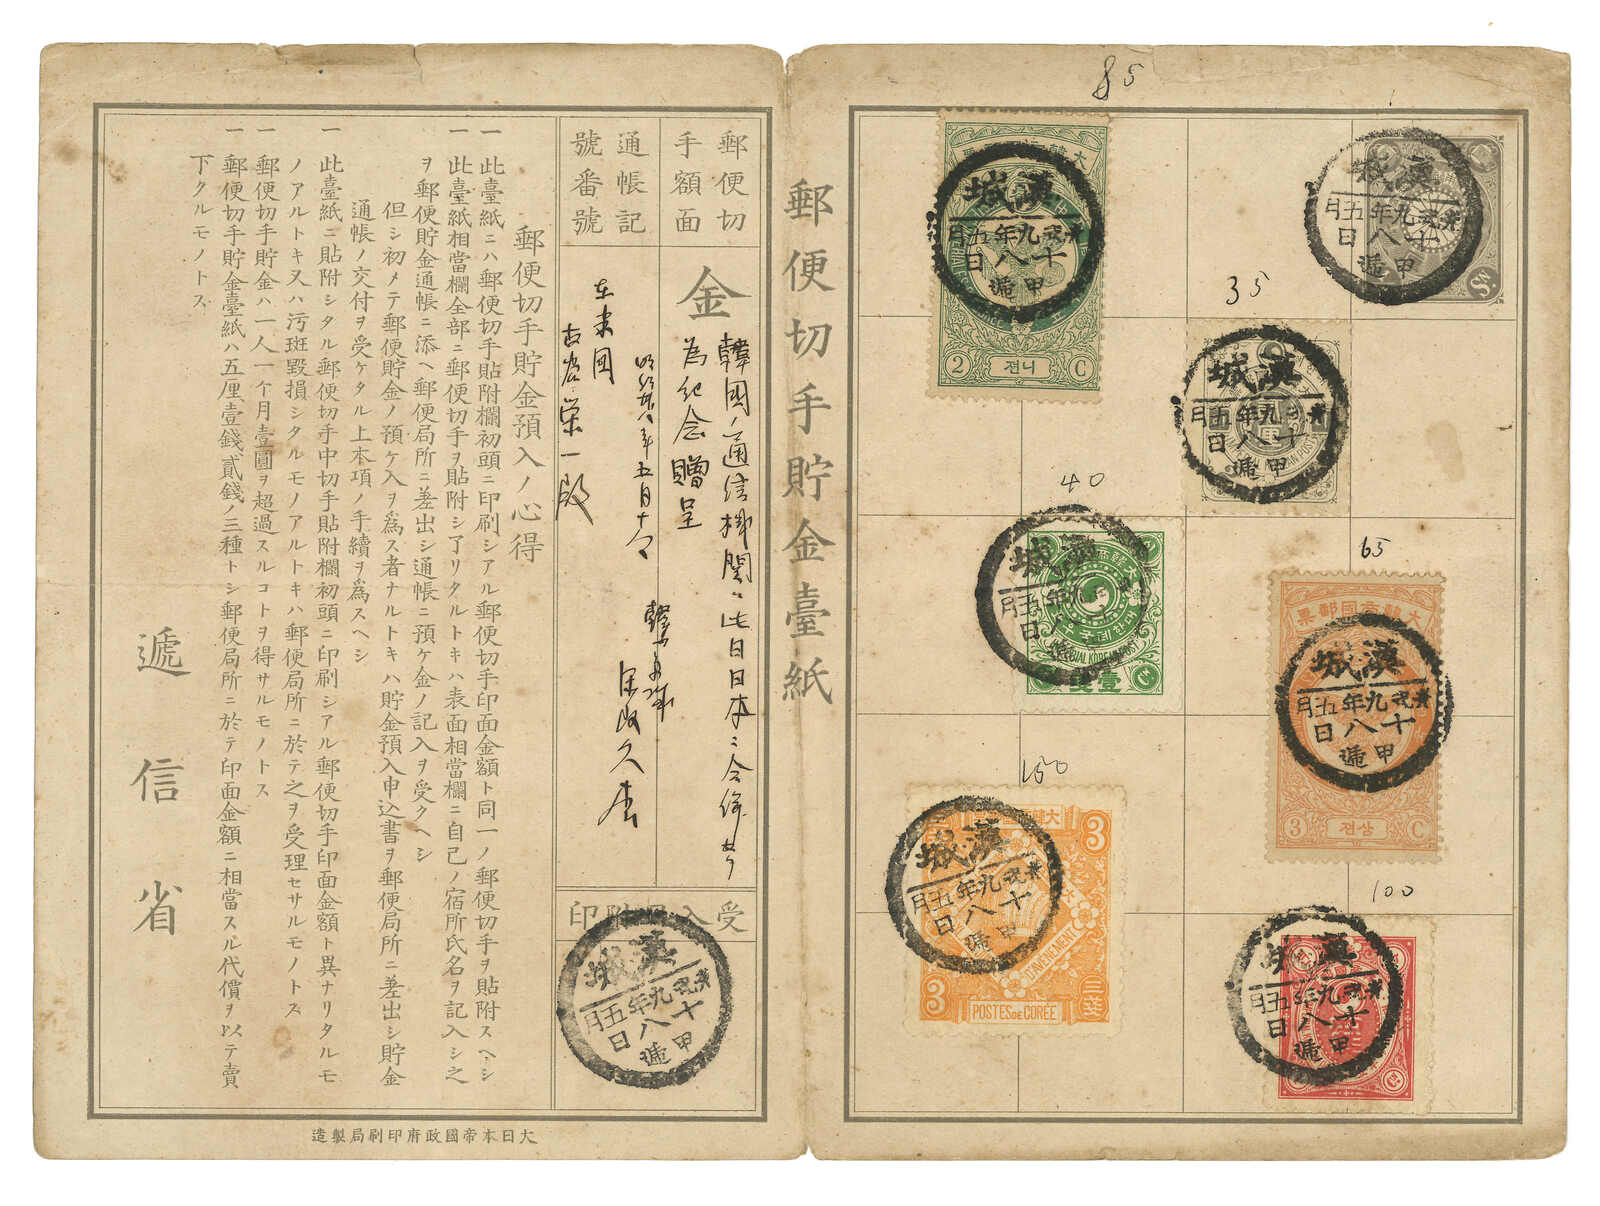 郵便切手貯金臺紙
郵便切
手額面
通帳記
號番號
金
韓國ノ通信機関ハ此日日本ニ合
為紀念贈呈
年五月十八
在京國
榮一殿
受入
印
郵便切手貯金預入ノ心得
一 此臺紙ニハ郵便切手貼附欄初頭ニ印刷シアル郵便切手印面金額ト同一ノ郵便切手ヲ貼附スヘシ
一 此臺紙相當欄全部ニ郵便切手ヲ貼附シ了リタルトキハ表面相當欄ニ自己ノ宿所氏名ヲ記入シ之
ヲ郵便貯金通帳ニ添ヘ郵便局所ニ差出シ通帳ニ預ケ金ノ記入ヲ受クヘシ
但シ初メテ郵便貯金ノ預ケ入ヲ爲ス者ナルトキハ貯金預入申込書ヲ郵便局所ニ差出シ貯金
通帳ノ交付ヲ受ケタル上本項ノ手續ヲ爲スヘシ
一 此臺紙ニ貼附シタル郵便切手中切手貼附欄初頭ニ印刷シアル郵便切手印面金額ト異ナリタルモ
ノアルトキ又ハ污斑毀損シタルモノアルトキハ郵便局所ニ於テ之ヲ受理セサルモノトス
一 郵便切手貯金ハ一人一个月壹圓ヲ超過スルコトヲ得サルモノトス
一 郵便切手貯金臺紙ハ五厘壹錢貳錢ノ三種トシ郵便局所ニ於テ印面金額ニ相當スル代價ヲ以テ賣
下クルモノトス
遞信省
大日本帝國政府印刷局製造
漢城
光武九年五月
十八日
甲遞
85
漢城
光武九年五月
十八日
甲遞
2 전니 C
漢城
光武九年五月
十八日
甲遞
35
漢城
光武九年五月
十八日
甲遞
40
漢城
九年五月
日
IAL KOREAN POST
壹
65
大韓帝國郵票
漢城
光武九年五月
十八日
甲遞
3 전삼 C
150
3
3
漢城
光武九年五月
十八日
甲遞
D'AVENEMENT
3
POSTES DE COREE
100
漢城
光武九年五月
十八日
甲遞
漢城
光武九年五月
十八日
甲遞